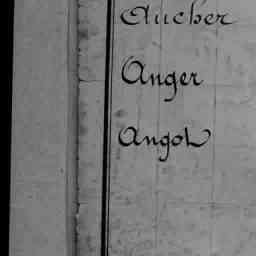 Aucher
Anger
Angot